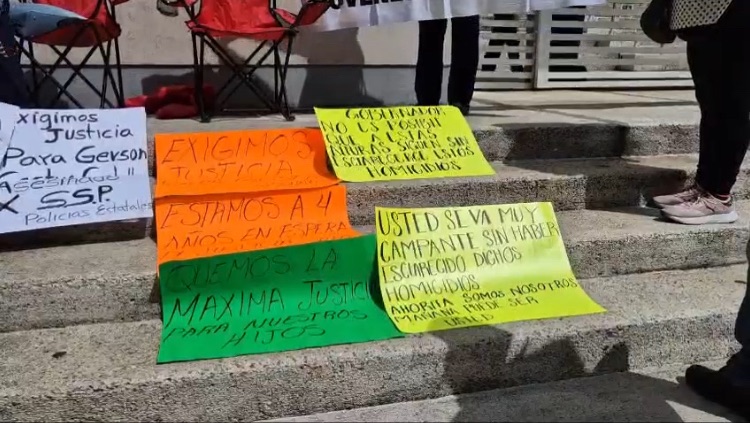 Exigimos
Justicia
Para Gerson
Asesinado
X SSP.
Policias Estatales
EXIGIMOS
JUSTICIA
ESTAMOS A 4
AÑOS EN ESPERA
QUEMOS LA
MAXIMA JUSTICI
PARA NUESTROS
HIJOS
GOBERNADOR
NO ES POSIBLE
A ESTAS
SIGUEN SIN
HOMICIDIOS
USTED SE VA MUY
CAMPANTE SIN HABER
ESCLARECIDO DICHOS
HOMICIDIOS
AHORITA SOMOS NOSOTROS
MAÑANA PUEDE SER
USTED